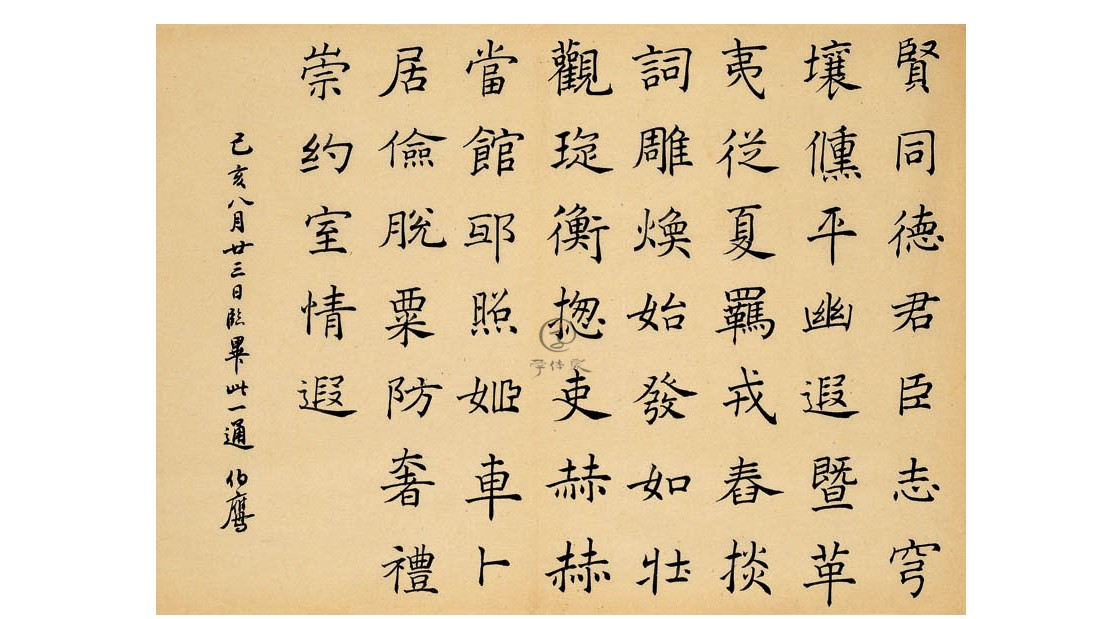 賢同徳君臣志穹
壤平幽遐暨革
夷従夏羈戎舂掞
詞雕煥始發如壯
觀琁衡揔吏赫赫
當館照姬車卜
居儉脫粟防奢禮
崇約室情遐
己亥八月廿三日臨畢此一通 伯鷹
字体家